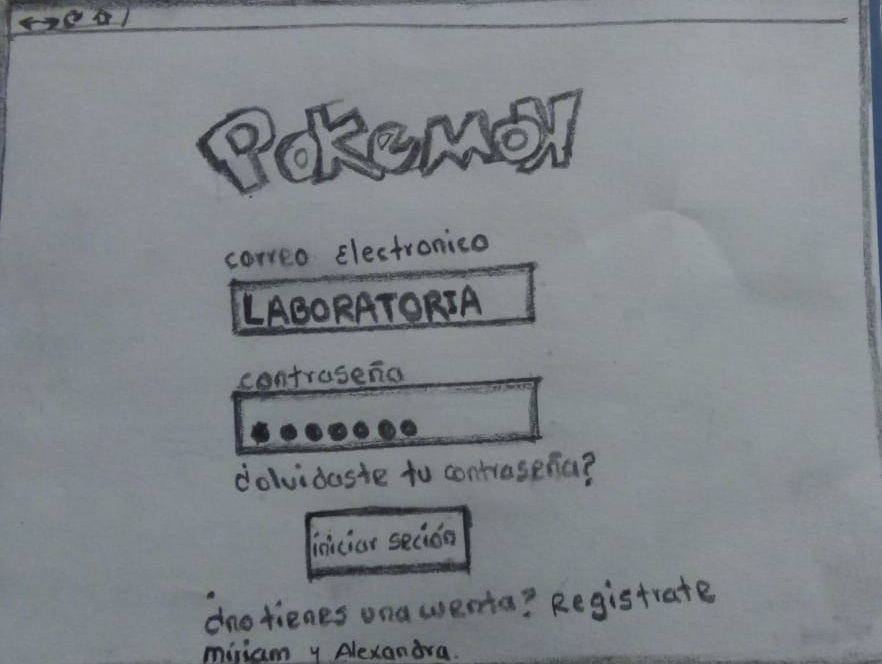 Pokemon
correo Electronico
LABORATORIA
contraseña
¿olvidaste tu contraseña?
iniciar seción
¿no tienes una cuenta? Registrate
miriam y Alexandra.